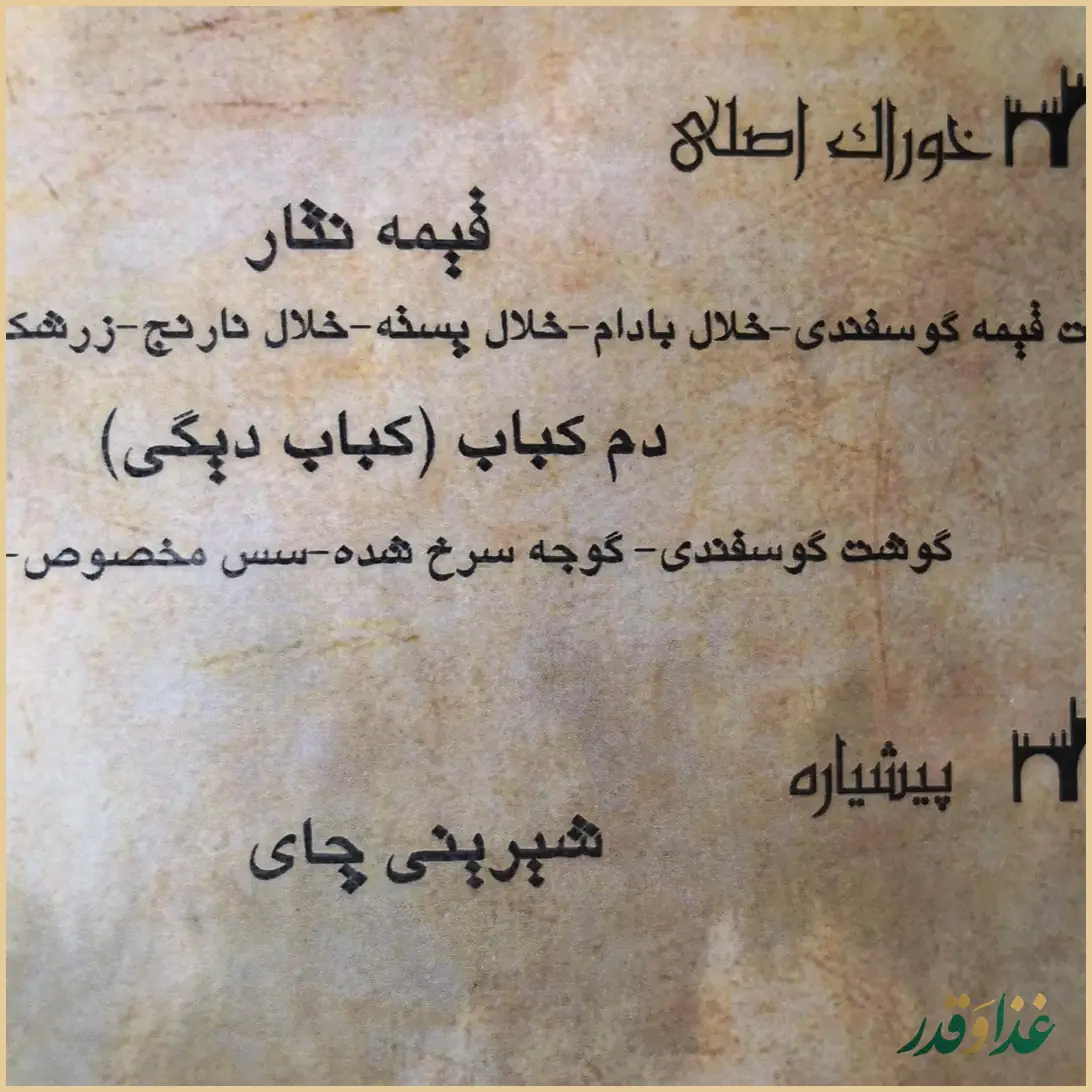 خوراک اصلی
قیمه نثار
قیمه گوسفندی-خلال بادام-خلال پسته-خلال نارنج-زرشک
دم کباب (کباب دیگی)
گوشت گوسفندی- گوجه سرخ شده-سس مخصوص-
پیشیاره
شیرینی چای
غذا و قدر